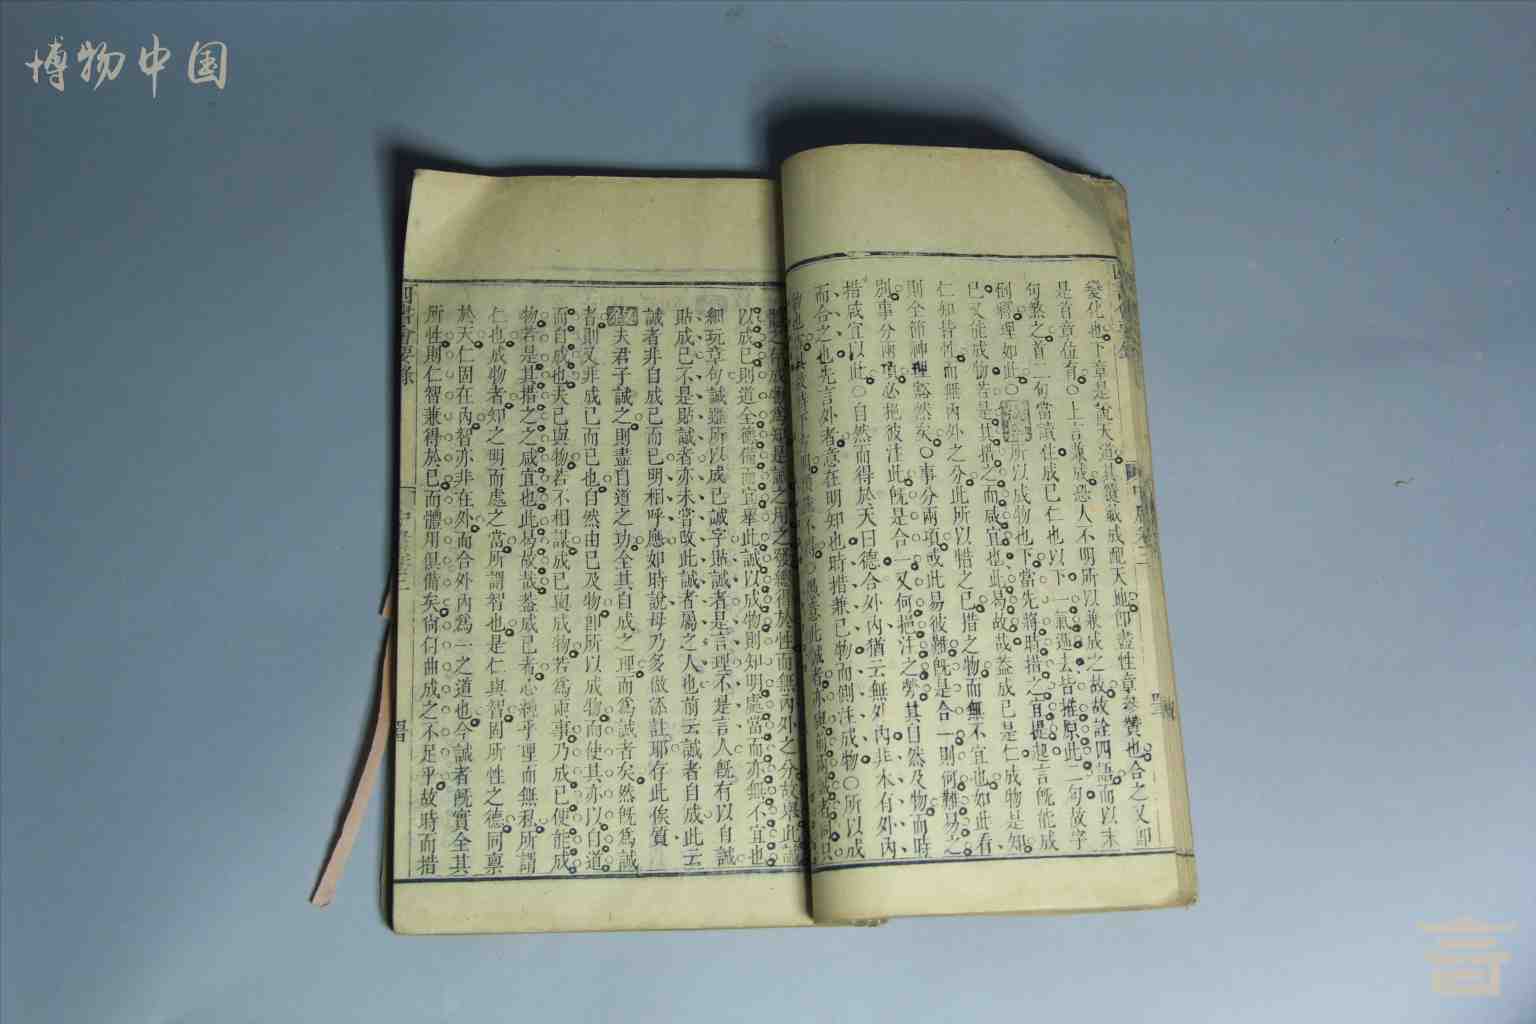 博物中国
變化也下章是說天道其簀載成配天地卽盡性章參贊也合之又卽
是首章位育○上言兼成恐人不明所以兼成之故故詮四語而以末
句煞之首二句當讀住成已仁也以下一氣遞去皆推原此二句故字
倒釋理如此○所以成物也下當先將時措之宜提起言旣能成
已又能成物若是其措之而咸宜也此曷故哉葢成已是仁成物是知
仁知皆性而無內外之分此所以措之已措之物而無不宜也如此看
則全節神理豁然矣○事分兩項或此易彼難旣是合一則何難易之
別事分兩項必挹彼注此旣是合一又何挹注之勞其自然及物而時
措咸宜以此○自然而得於天曰德合外內猶云無外內非本有外內
而合之也先言外者意在明知也時措兼已物而側注成物○所以成
以成已則道全德備而宜舉此誠以成物則知明處當而亦無不宜也
細玩章句誠雖所以成已誠字貼誠者是言理不是言人旣有以自誠
貼成已不是貼誠者亦未嘗改此誠者屬之人也前云誠者自成此云
誠者非自成已而已明相呼應如時說毋乃多做添註耶存此俟質
夫君子誠之則盡自道之功全其自成之理而爲誠者矣然旣爲誠
者則又非成已而已也自然由已及物卽所以成物而使其亦以自道
而自成也夫已與物若不相謀成已與成物若爲兩事乃成已便能成
物若是其措之之咸宜也此曷故哉葢成已者心純乎理而無私所謂
仁也成物者知之明而處之當所謂智也是仁與智固所性之德同禀
於天仁固在內智亦非在外而合外內爲一之道也今誠者旣實全其
所性則仁智兼得於已而體用俱備矣尙何曲成之不足乎故時而措
四書會要錄
言